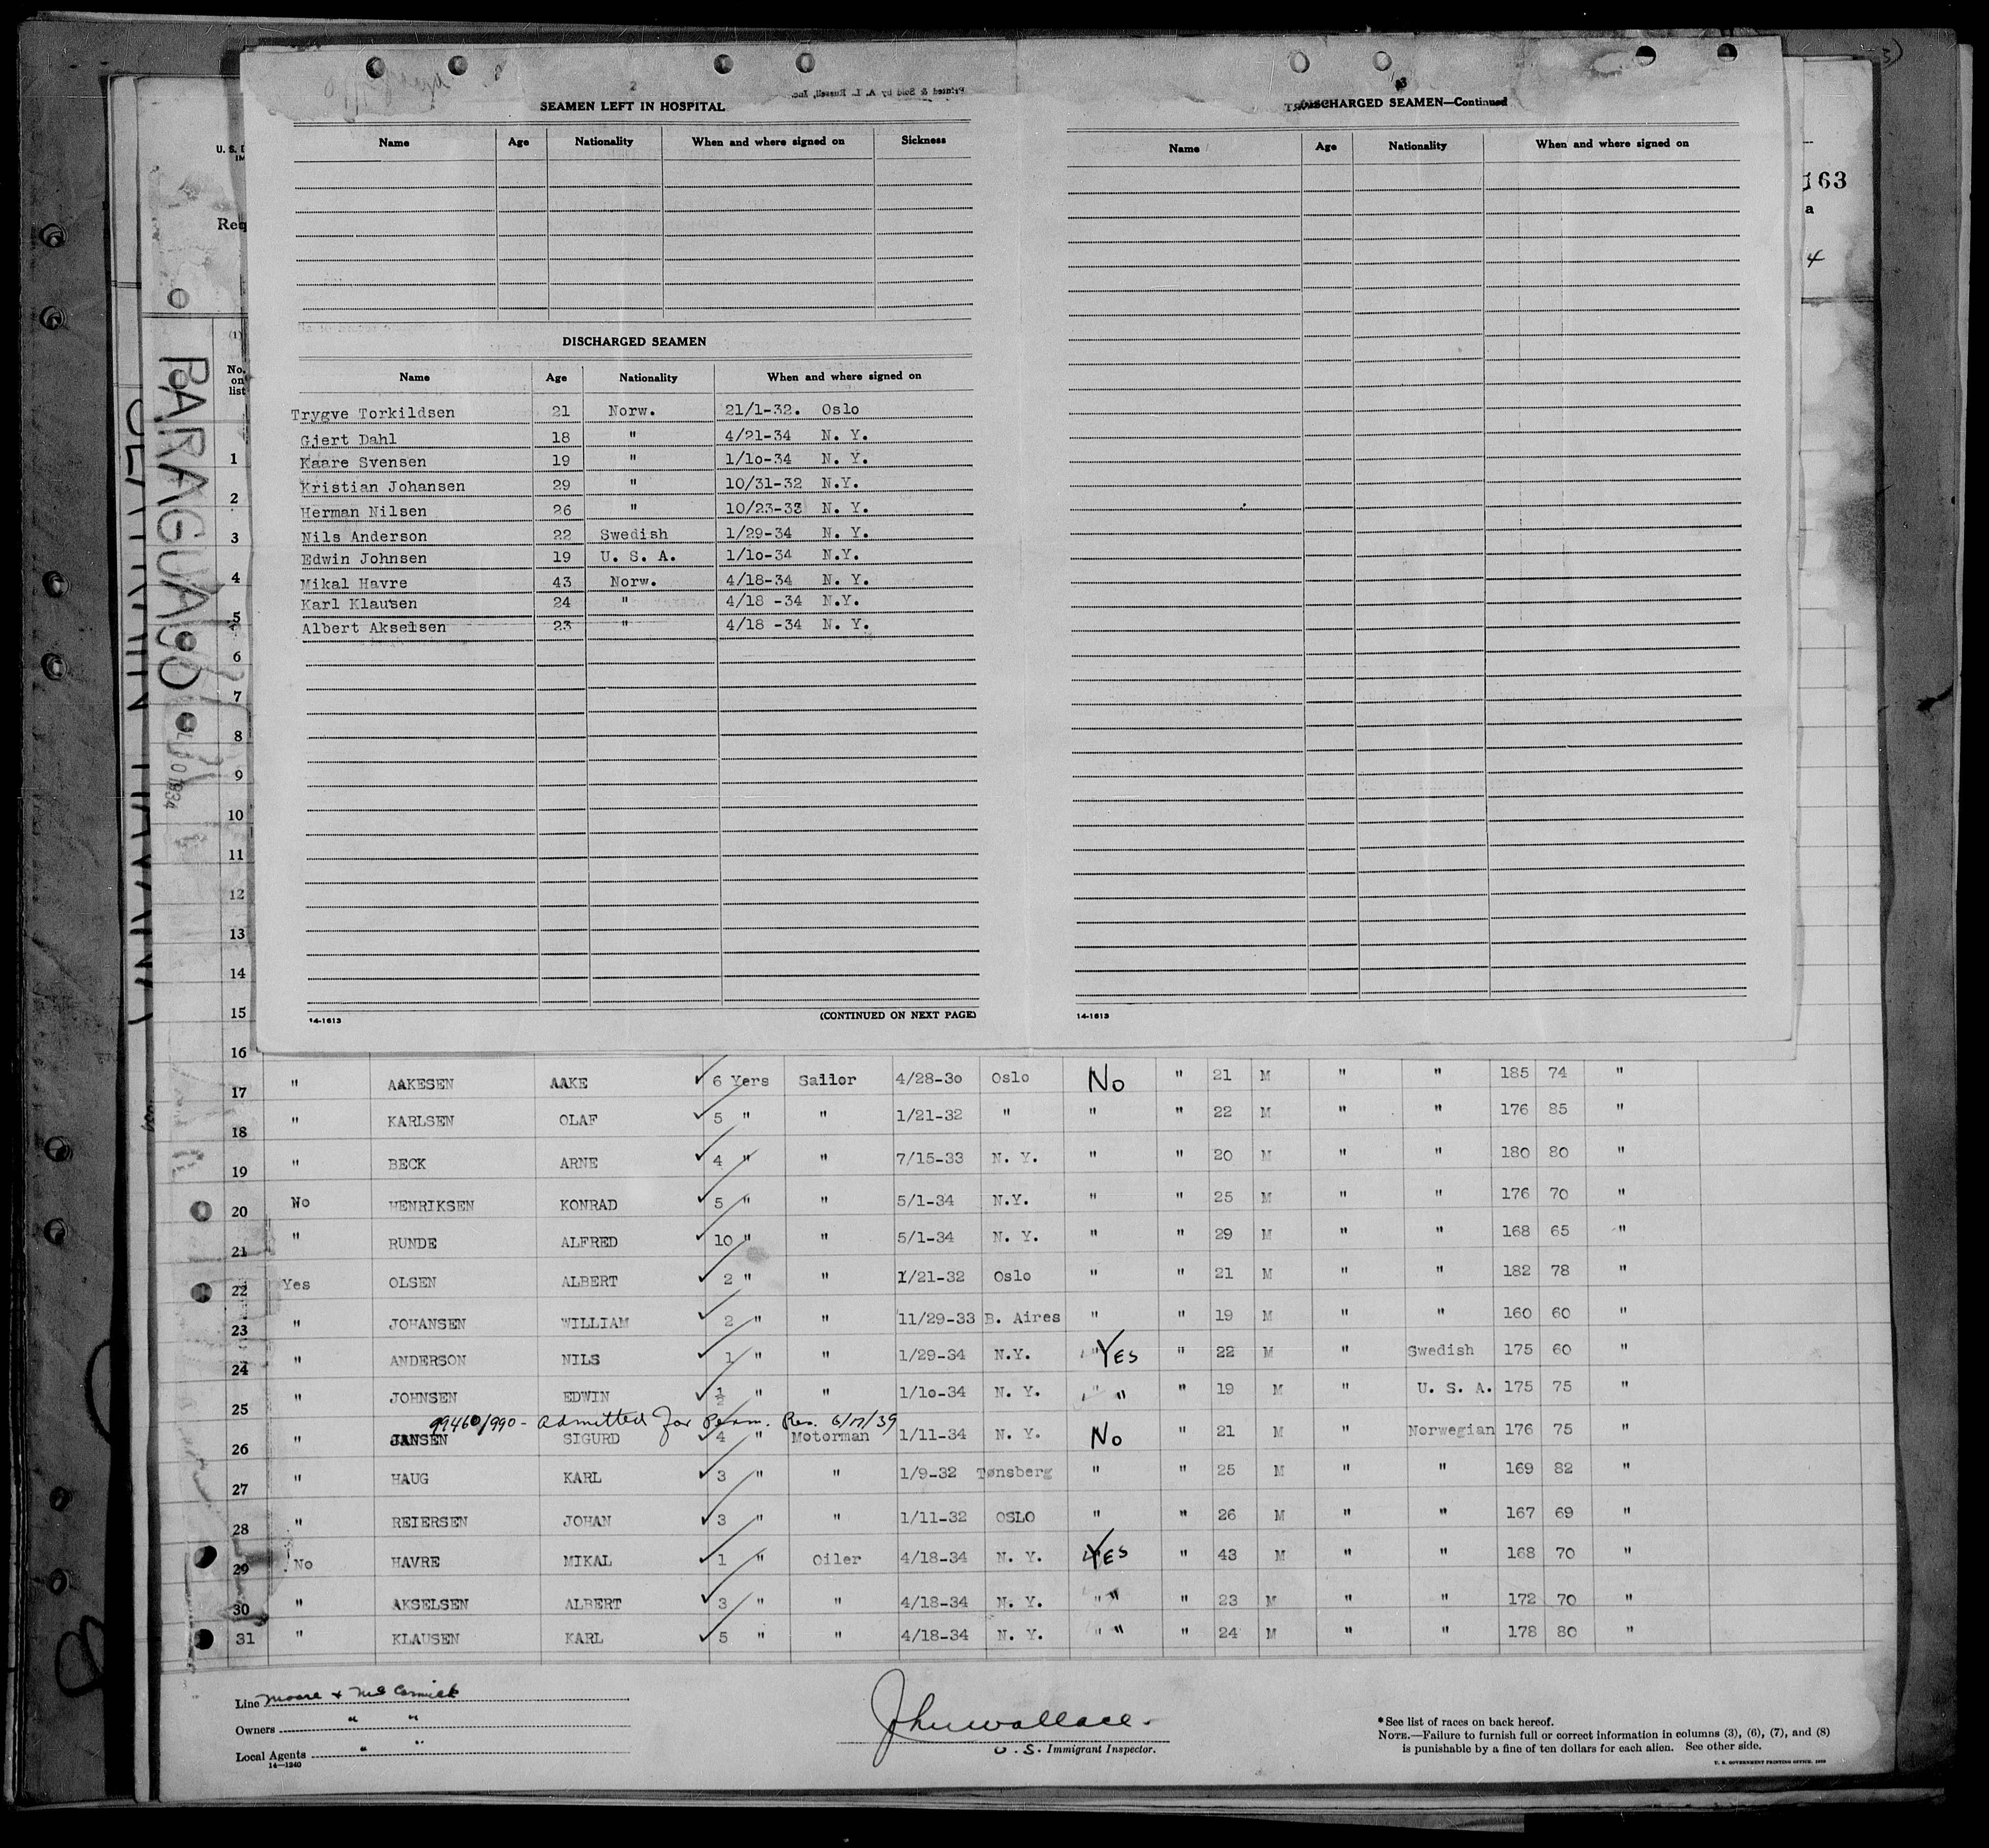 SEAMEN LEFT IN HOSPITAL
2
Printed & Sold by A. L. Russell, Inc.
Name Age Nationality When and where signed on Sickness
DISCHARGED SEAMEN
Name Age Nationality When and where signed on
Trygve Torkildsen 21 Norw. 21/1-32. Oslo
Gjert Dahl 18 " 4/21-34 N. Y.
Kaare Svensen 19 " 1/10-34 N. Y.
Kristian Johansen 29 " 10/31-32 N.Y.
Herman Nilsen 26 " 10/23-33 N. Y.
Nils Anderson 22 Swedish 1/29-34 N. Y.
Edwin Johnsen 19 U. S. A. 1/10-34 N.Y.
Mikal Havre 43 Norw. 4/18-34 N. Y.
Karl Klausen 24 " 4/18 -34 N.Y.
Albert Akselsen 23 " 4/18 -34 N. Y.
14-1613 (CONTINUED ON NEXT PAGE)
3
DISCHARGED SEAMEN—Continued
Name Age Nationality When and where signed on
14-1613
U. S. D
IM
Req
163
a
4
(1)
No. on list
PARAGUAYO
1934
1
2
3
4
5
6
7
8
9
10
11
12
13
14
15
16
17 " AAKESEN AAKE 6 Yers Sailor 4/28-30 Oslo No " 21 M " " 185 74 "
18 " KARLSEN OLAF 5 " " 1/21-32 " " " 22 M " " 176 85 "
19 " BECK ARNE 4 " " 7/15-33 N. Y. " " 20 M " " 180 80 "
20 No HENRIKSEN KONRAD 5 " " 5/1-34 N.Y. " " 25 M " " 176 70 "
21 " RUNDE ALFRED 10 " " 5/1-34 N. Y. " " 29 M " " 168 65 "
22 Yes OLSEN ALBERT 2 " " 1/21-32 Oslo " " 21 M " " 182 78 "
23 " JOHANSEN WILLIAM 2 " " 11/29-33 B. Aires " " 19 M " " 160 60 "
24 " ANDERSON NILS 1 " " 1/29-34 N.Y. YES " 22 M " Swedish 175 60 "
25 " JOHNSEN EDWIN ½ " " 1/10-34 N. Y. " " 19 M " U. S. A. 175 75 "
99460/990 - Admitted for Perm. Res. 6/17/39
26 " JANSEN SIGURD 4 " Motorman 1/11-34 N. Y. No " 21 M " Norwegian 176 75 "
27 " HAUG KARL 3 " " 1/9-32 Tønsberg " " 25 M " " 169 82 "
28 " REIERSEN JOHAN 3 " " 1/11-32 OSLO " " 26 M " " 167 69 "
29 No HAVRE MIKAL 1 " Oiler 4/18-34 N. Y. YES " 43 M " " 168 70 "
30 " AKSELSEN ALBERT 3 " " 4/18-34 N. Y. " " 23 M " " 172 70 "
31 " KLAUSEN KARL 5 " " 4/18-34 N. Y. " " 24 M " " 178 80 "
Line Moore & McCormick
Owners " "
Local Agents " "
14—1240
John Wallace.
U. S. Immigrant Inspector.
*See list of races on back hereof.
NOTE.—Failure to furnish full or correct information in columns (3), (6), (7), and (8)
is punishable by a fine of ten dollars for each alien. See other side.